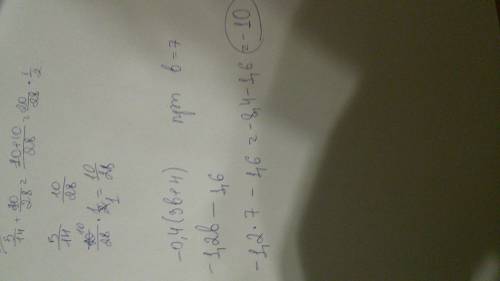 5/14 + 10/28 = 10+10/28 = 20/28 · 1/2
5/14 10/28
10/28 · 1/1 = 10/28
-0,4(3в+4) при в=7
-1,2в - 1,6
-1,2·7 - 1,6 = -8,4-1,6 = -10